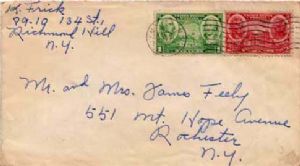 K. Frick
89-19 134 St.
Richmond Hill
N.Y.
Mr. and Mrs. James Feehy
551 Mt. Hope Avenue
Rochester
N.Y.